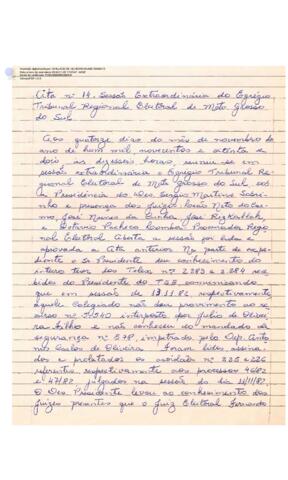 Ata nº 14. Sessão Extraordinária do Egrégio
Tribunal Regional Eleitoral de Mato Grosso
do Sul.
Aos quatorze dias do mês de novembro do
ano de hum mil novecentos e oitenta e
dois às dezesseis horas, reuniu-se em
sessão extraordinária o Egrégio Tribunal Re-
gional Eleitoral de Mato Grosso do Sul, sob
a Presidência do Des. Sergio Martins Sobri-
nho e presença dos Juízes
José Nunes da Cunha, José Rizkallah,
e Octavio Pacheco Procurador Regio
nal Eleitoral. Aberta a sessão foi lida e
aprovada a Ata anterior. Na parte de expe-
diente o Sr. Presidente deu conhecimento do
inteiro teor dos Telex nºs 2283 e 2284 rece
bidos do Presidente do TSE comunicando
que em sessão de 13.11.82, respectivamente,
aquele colegiado não deu provimento ao re
curso nº interposto por Julio de Olivei
ra Filho e não conheceu do mandado de
segurança nº 578, impetrado pelo Dep.
Carlos de Oliveira. Foram lidos, assina-
dos e prolatados os acórdãos nº 225 e 226
referentes respectivamente aos processos 46/82
e 47/82 julgados na sessão do dia 11/11/82.
O Des. Presidente levou ao conhecimento dos
juízes presentes que o Juiz Eleitoral Fernando